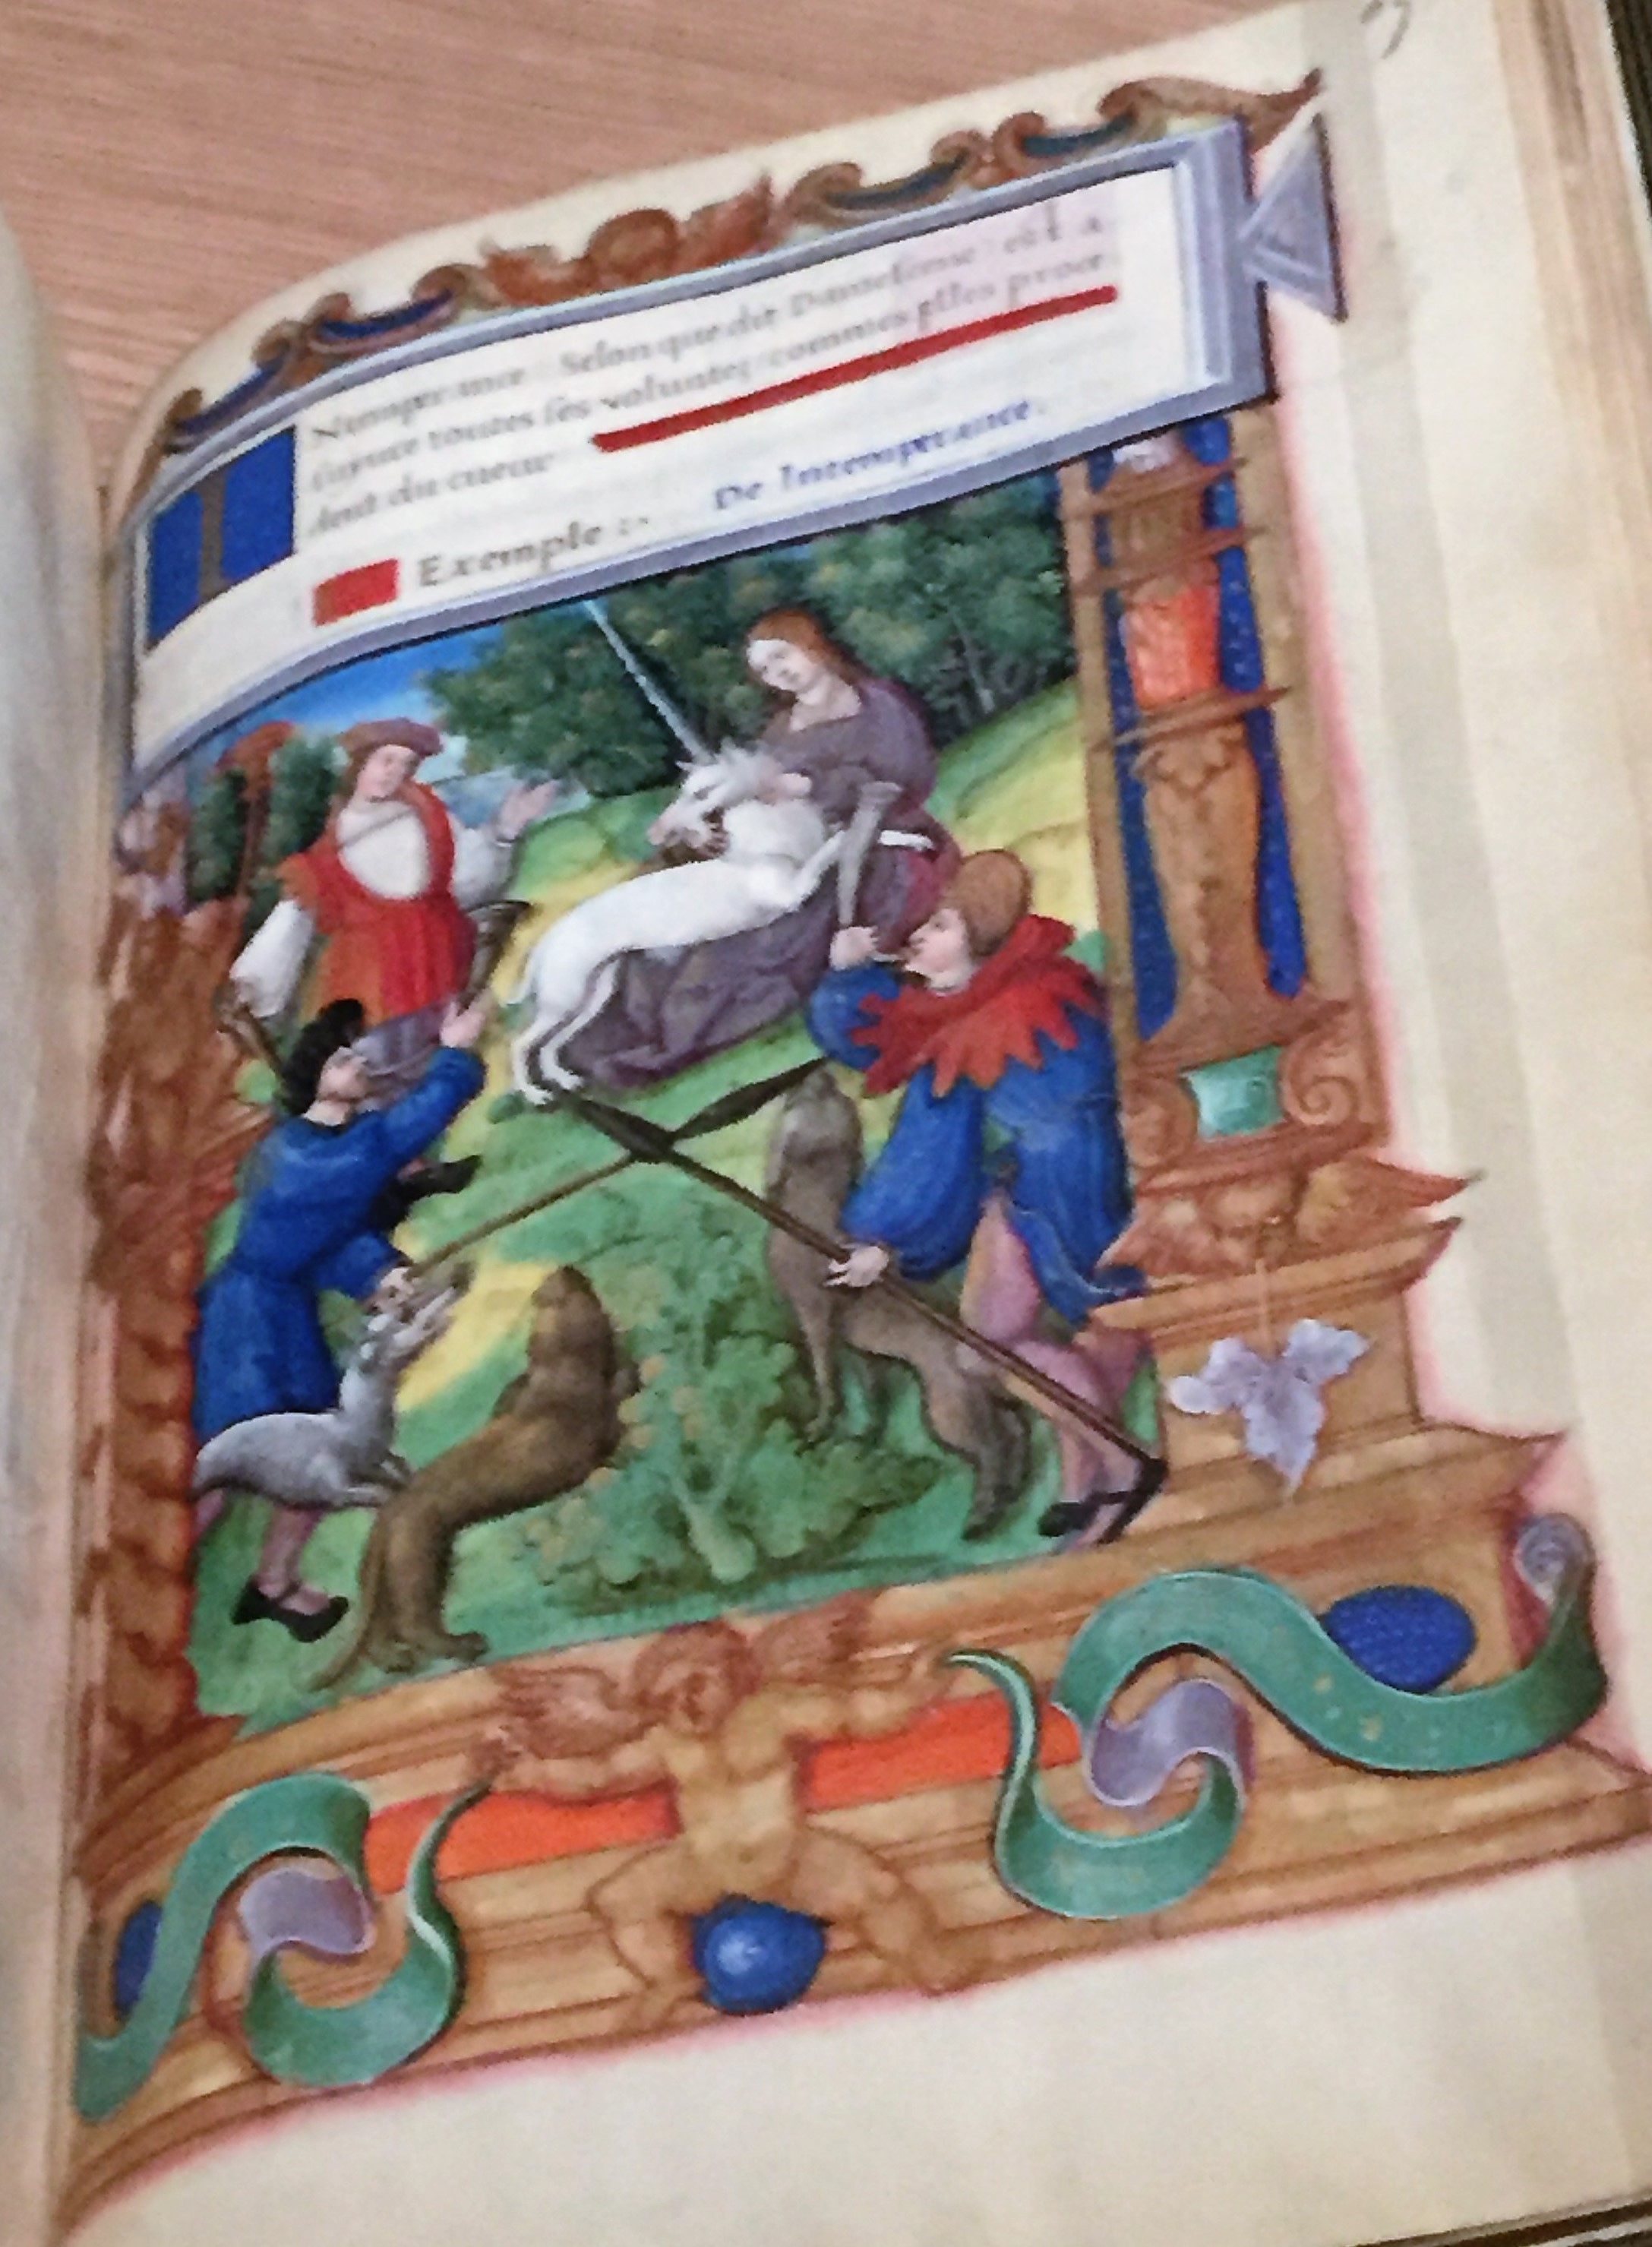 Nemperance Selon que dit Damascene est a
suyure toutes ses voluntez commes elles proce
dent du cueur
Exemple :~ De Intemperance.